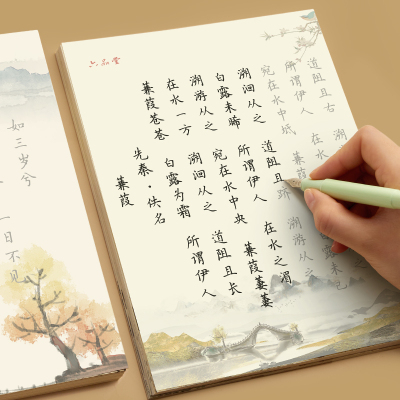 六品堂
蒹葭
先秦·佚名
蒹葭苍苍 白露为霜 所谓伊人
在水一方 溯洄从之 道阻且长
溯游从之 宛在水中央 蒹葭萋萋
白露未晞 所谓伊人 在水之湄
溯洄从之 道阻且跻 溯游从之
宛在水中坻 蒹葭 白露未已
所谓伊人 在水
道阻且右 溯
如三岁兮
一日不见